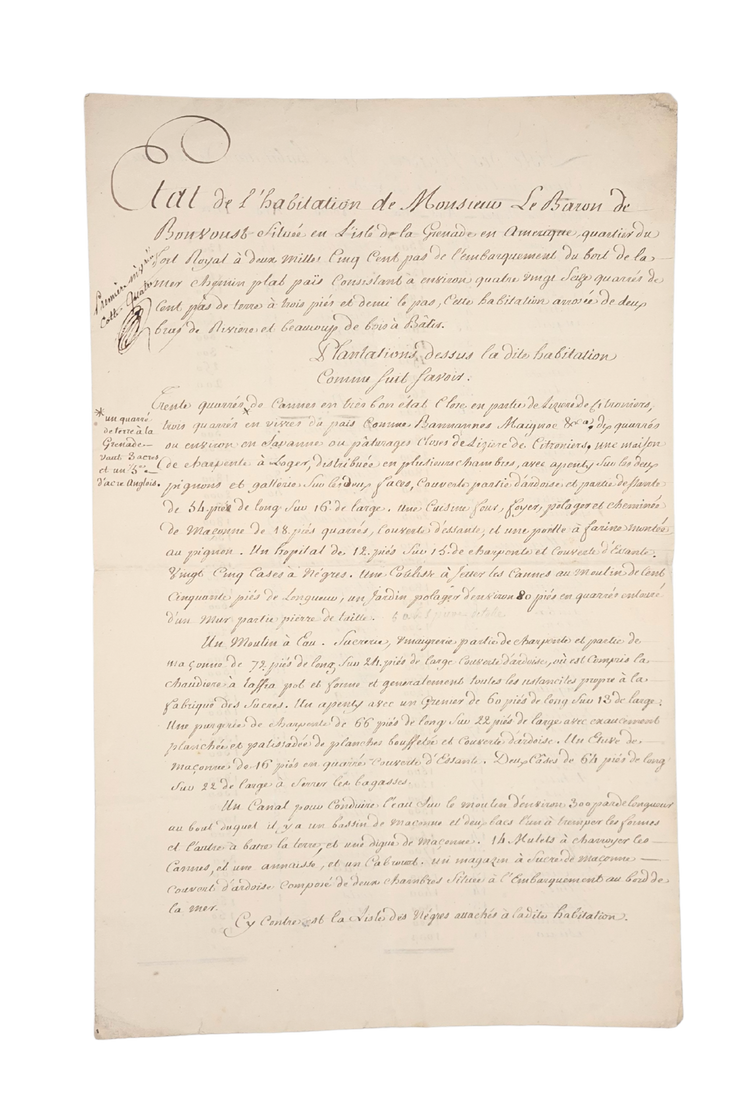 Etat de l'habitation de Monsieur Le Baron de
Bonvoust Située en L'isle de la Grenade en Amerique, quartier du
fort Royal à deux mille Cinq Cent pas de l'embarquement du bort de la
mer Chemin plat païs Consistant a environ quatre vingt Seize quarrés de
Cent pas de terre à trois piés et demi le pas, Cette habitation arrosée de deux
bras de Riviere et beaucoup de bois à Bâtir.
Premiere
Cotte Quatre
Plantations dessus la dite habitation
Comme suit Savoir:
Trente quarrés de Cannes en très bon état Close en partie de Lizière de Citroniers,
trois quarrés en vivres du païs Comme Bannannes Maignoc &ca; de quarrés
ou environ en Savanne ou pâturages Closes de Lizière de Citroniers. une maison
de Charpente à Loger, distribuée en plusieurs chambres, avec apenty Sur les deux
pignons et gallerie Sur les deux faces, Couverte partie d'ardoise, et partie d'essante
de 54 piés de long sur 16 de large. Une Cuisine four, foyer, potager et cheminée
de Maçonne de 18 piés quarrés, Couverte d'essante, et une poelle à farine montée
au pignon. Un hopital de 12 piés Sur 15 de charpente et Couverte d'Essante.
Vingt Cinq Cases à Nègres. Une Coulisse à Jetter les Cannes au Moulin de Cent
Cinquante piés de Longueur, un Jardin potager d'environ 80 piés en quarrée entouré
d'un Mur partie pierre de taille.
* un quarré
de terre à la
Grenade
vaut 3 acres
et un 1/3
d'acre Anglois.
Un Moulin à Eau. Sucrerie, Vinaigrerie partie de charpente et partie de
maçonne de 72 piés de long Sur 24 piés de large Couverte d'ardoise, où est Compris la
Chaudiere à taffia pot et forme et generalement toutes les ustanciles propre à la
fabrique des Sucres. Un apenty avec un Grenier de 60 piés de long Sur 13 de large.
Une purgerie de charpente de 66 piés de long Sur 22 piés de large avec exaucement
planchée et palissadée de planches bouffetée et Couverte d'ardoise. Un Etuve de
Maçonne de 16 piés en quarrée Couverte d'Essante. Deux Câses de 64 piés de long
Sur 22 de large à Serrer les bagasses.
Un Canal pour Conduire l'eau Sur le moulin d'environ 300 pas de longueur
au bout duquel il y a un bassin de maçonne et deux bacs l'un à tremper les formes
et l'autre à batre la terre, et une digue de Maçonne. 14 Mulets à charroyer les
Cannes, et une annasse, et un Cabrouet. un magazin à Sucre de maçonne
Couvert d'ardoise Composé de deux chambres Située à l'Embarquement au bord de
la mer.
Cy Contre est la Liste des Nègres attachés à ladite habitation.